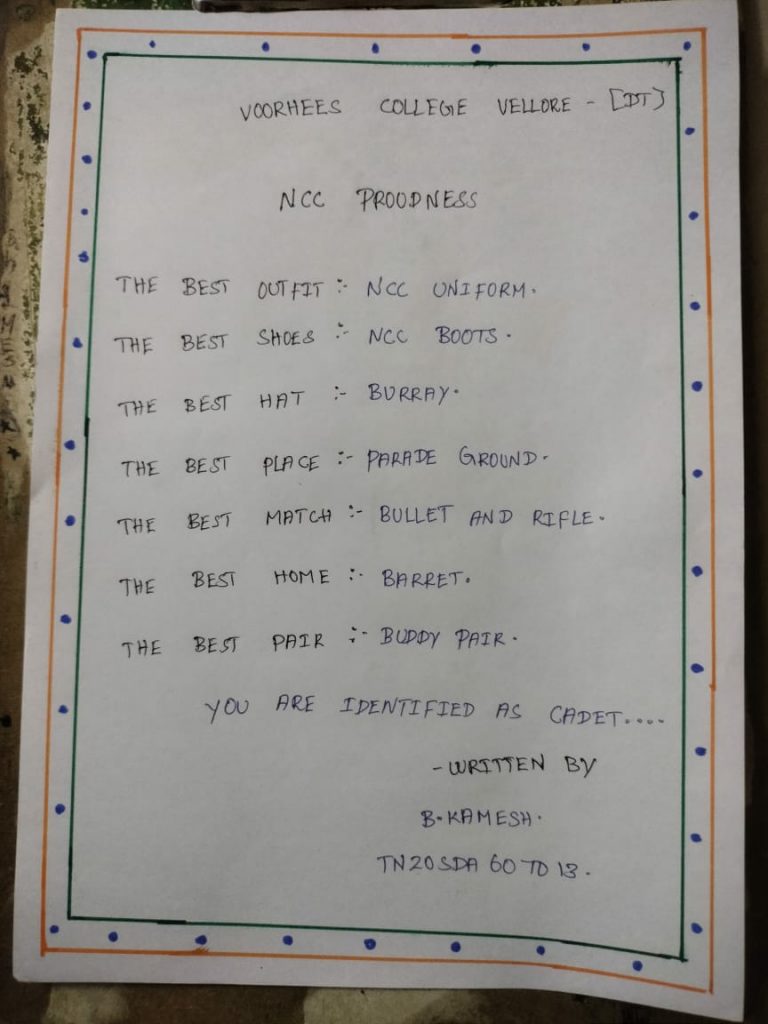 VOORHEES COLLEGE VELLORE - [DT]
NCC PROODNESS
THE BEST OUTFIT :- NCC UNIFORM.
THE BEST SHOES :- NCC BOOTS.
THE BEST HAT :- BURRAY.
THE BEST PLACE :- PARADE GROUND.
THE BEST MATCH :- BULLET AND RIFLE.
THE BEST HOME :- BARRET.
THE BEST PAIR :- BUDDY PAIR.
YOU ARE IDENTIFIED AS CADET....
- WRITTEN BY
B. KAMESH.
TN20SDA 60 TO 13.